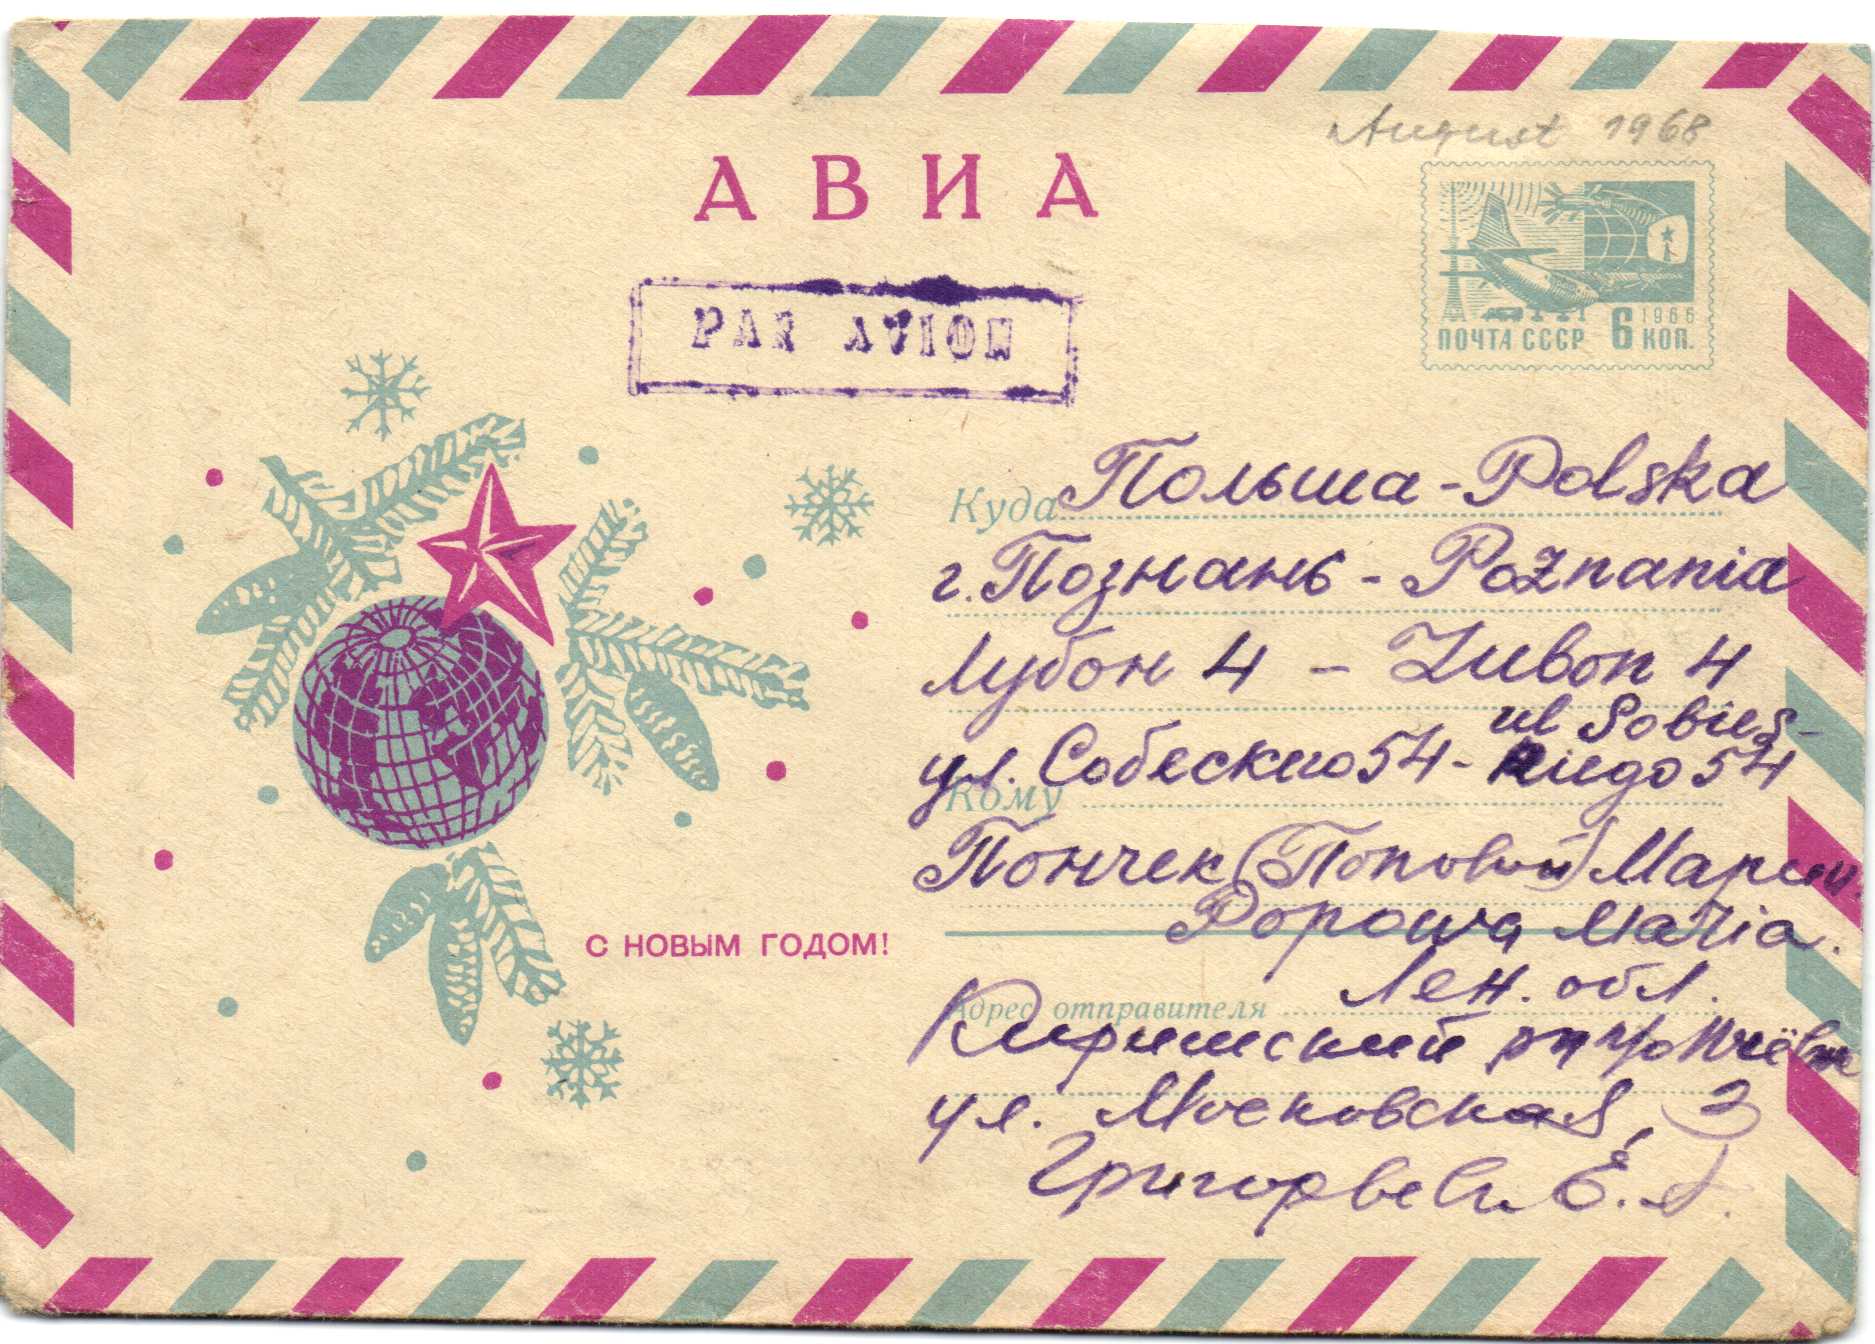 August 1968
АВИА
PAR AVION
1966
ПОЧТА СССР 6 КОП.
Куда Польша - Polska
г. Познань - Poznania
Лубон 4 - Lubon 4
ul Sobies-
ул. Собеского 54 - kiego 54
Кому
Пончек (Поповой) Марии
Popowa Maria.
С НОВЫМ ГОДОМ!
Адрес отправителя Лен. обл.
Киришский
ул. Московская, 3
Е.